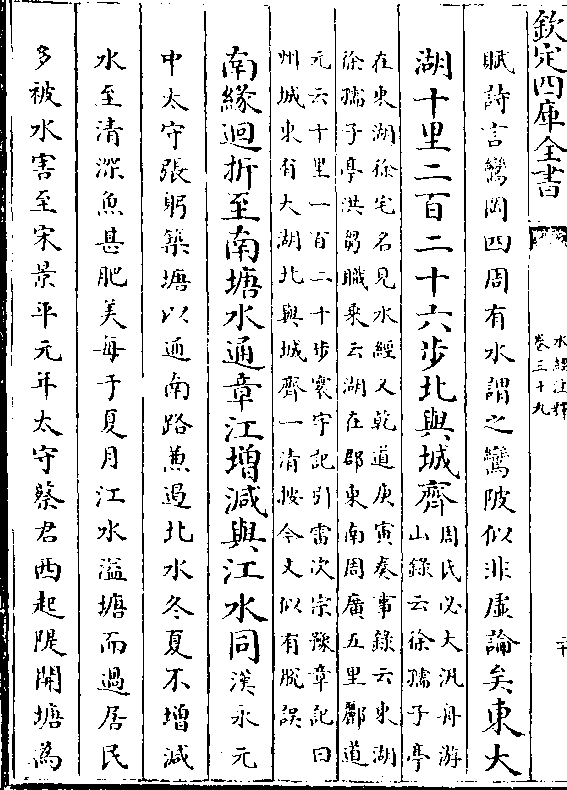 欽定四庫全書
水經注釋
卷三十九
賦詩言鸞岡四周有水謂之鸞陂似非虛論矣東大
湖十里二百二十六步北與城齊
周氏必大汎舟游
山錄云徐孺子亭
在東湖徐宅名見水經又乾道庚寅奏事錄云東湖
徐孺子亭洪芻職乘云湖在郡東南周廣五里酈道
元云十里一百二十步寰宇記引雷次宗豫章記曰
州城東有大湖北與城齊一清按今文似有脫誤
南緣迴折至南塘水通章江增減與江水同
漢永元
中太守張躬築塘以通南路兼遏北水冬夏不增減
水至清深魚甚肥美每于夏月江水溢塘而過居民
多被水害至宋景平元年太守蔡君西起隄開塘為